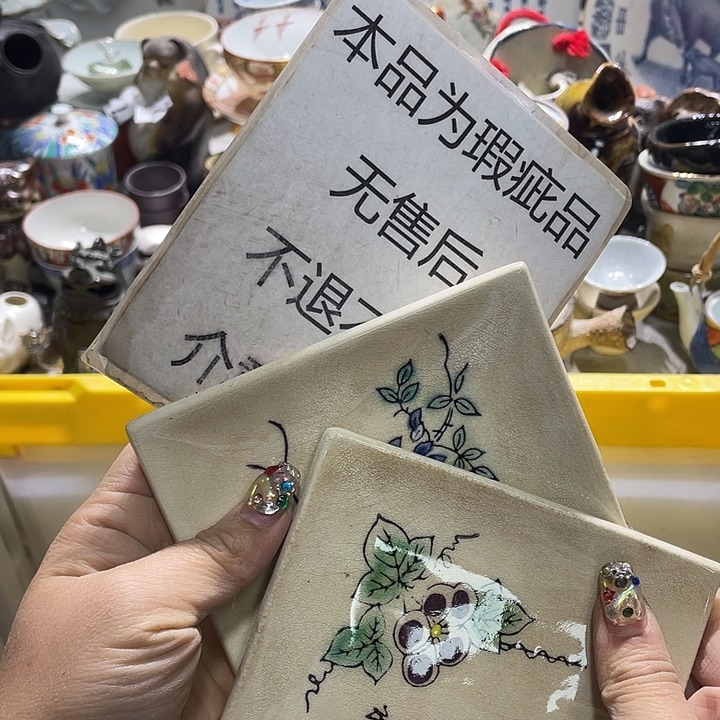 本品为瑕疵品
无售后
不退
介